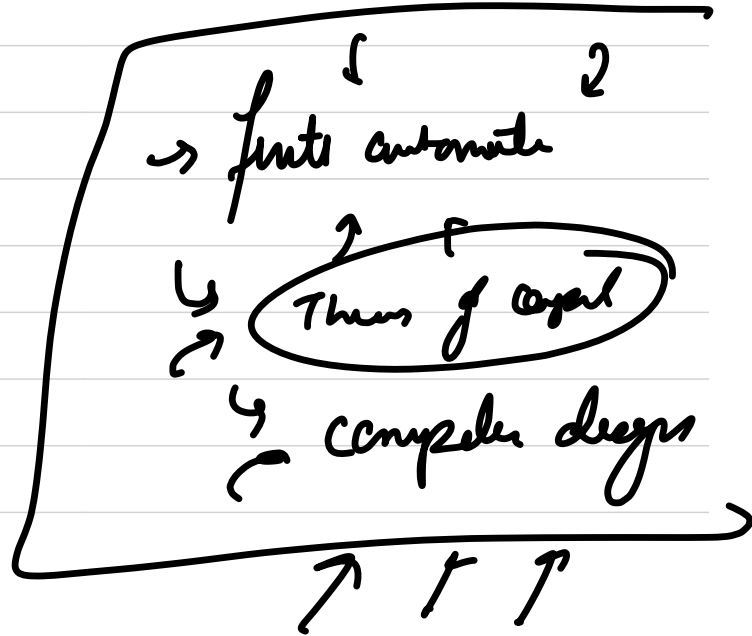 finite automata
Theory of
compiler design